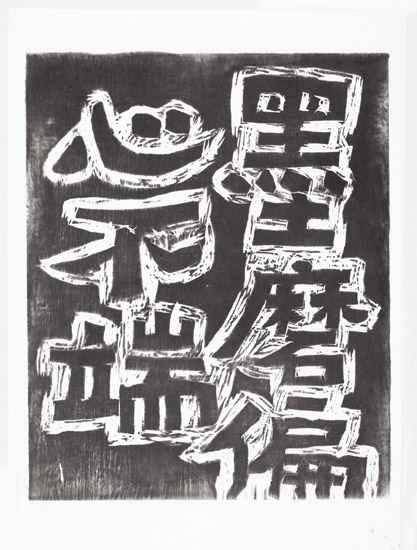 墨磨偏
心不端